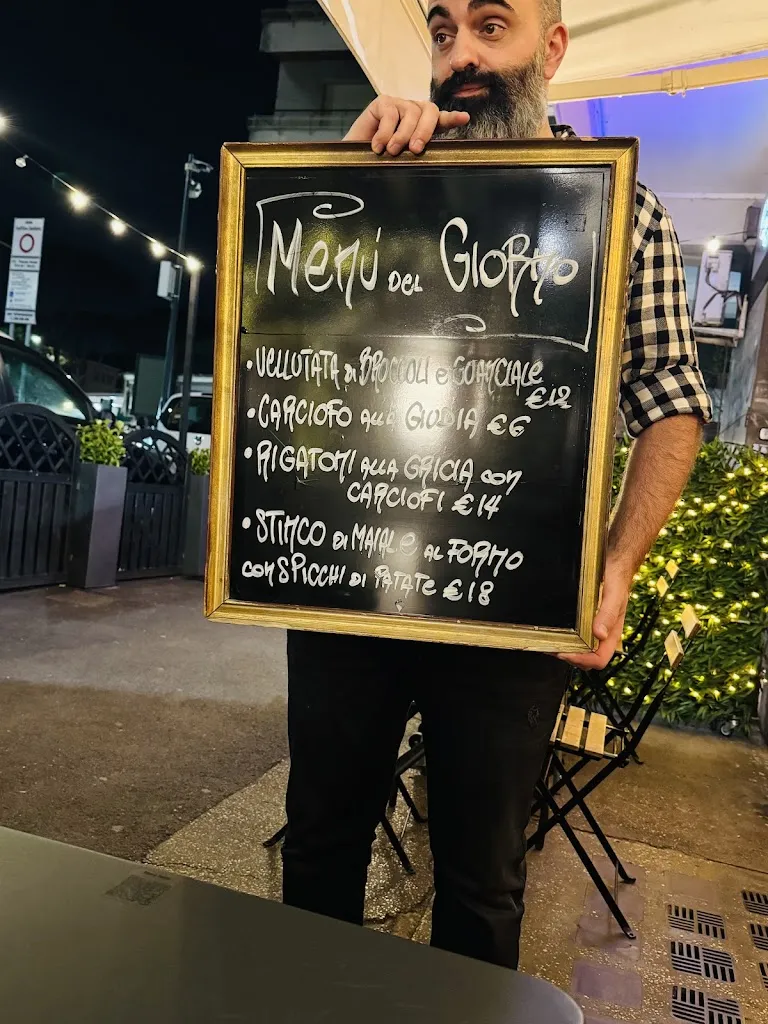 Menú del Giorno
• Vellutata di Broccoli e Guanciale
€12
• Carciofo alla Giudia €6
• Rigatoni alla Gricia con
Carciofi €14
• Stinco di Maiale al Forno
con spicchi di Patate €18